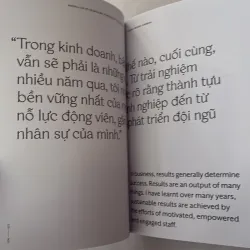 “Trong kinh doanh, thế nào, cuối cùng,
vẫn sẽ phải là những Từ trải nghiệm
nhiều năm qua, tôi rõ ràng thành tựu
bền vững nhất của nghiệp đến từ
nỗ lực động viên, phát triển đội ngũ
nhân sự của mình.”
business, results generally determine
success. Results are an output of many
things. I have learnt over many years,
sustainable results are achieved by
the efforts of motivated, empowered
and engaged staff.